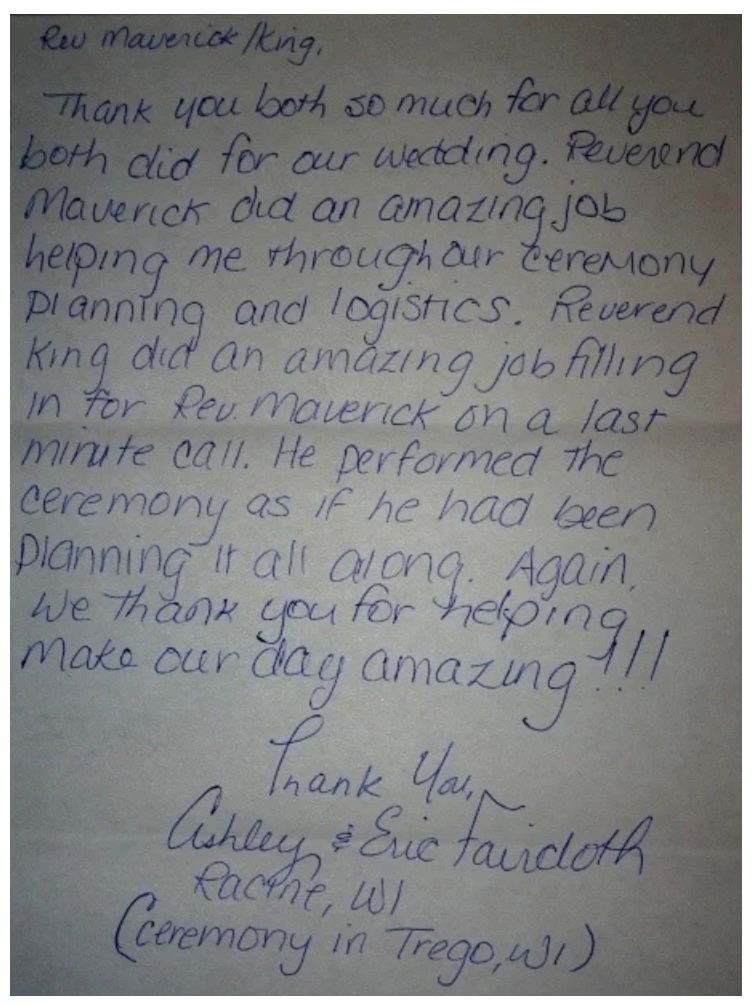 Rev Maverick/King,
Thank you both so much for all you
both did for our wedding. Reverend
Maverick did an amazing job
helping me through our ceremony
planning and logistics. Reverend
King did an amazing job filling
in for Rev. Maverick on a last
minute call. He performed the
ceremony as if he had been
planning it all along. Again,
we thank you for helping
make our day amazing!!!
Thank You,
Ashley & Eric Faircloth
Racine, WI
(ceremony in Trego, WI)